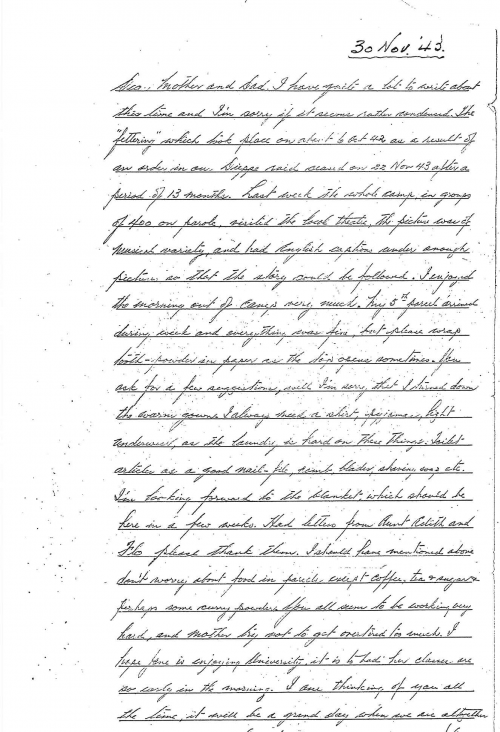 30 Nov. '43.
Dear Mother and Dad. I have quite a lot to write about
this time and I'm sorry if it seems rather condensed. The
"fettering" which took place on about 6 Oct 42 as a result of
an order in our Dieppe raid ceased on 22 Nov 43 after a
period of 13 months. Last week the whole camp, in groups
of 400 on parole, visited the local theatre, the picture was of
musical variety, and had English caption under enough
picture so that the story could be followed. I enjoyed
the morning out of camp very much. My 5th parcel arrived
during week and everything was fine, but please wrap
tooth-powder in paper as the tin opens sometimes. You
ask for a few suggestions, well I'm sorry that I turned down
the warm gown. I always need a shirt, pyjamas, light
underwear, as the laundry is hard on these things. Toilet
articles as a good nail-file, comb, blades, shaving soap etc.
I'm looking forward to the blanket which should be
here in a few weeks. Had letters from Aunt Edith and
Flo please thank them. I should have mentioned above
don't worry about food in parcels, except coffee, tea & sugar &
perhaps some curry powder. You all seem to be working very
hard, and mother try not to get overtired too much. I
hope June is enjoying University, it is to bad her classes are
so early in the morning. I am thinking of you all
the time, it will be a grand day when we are altogether